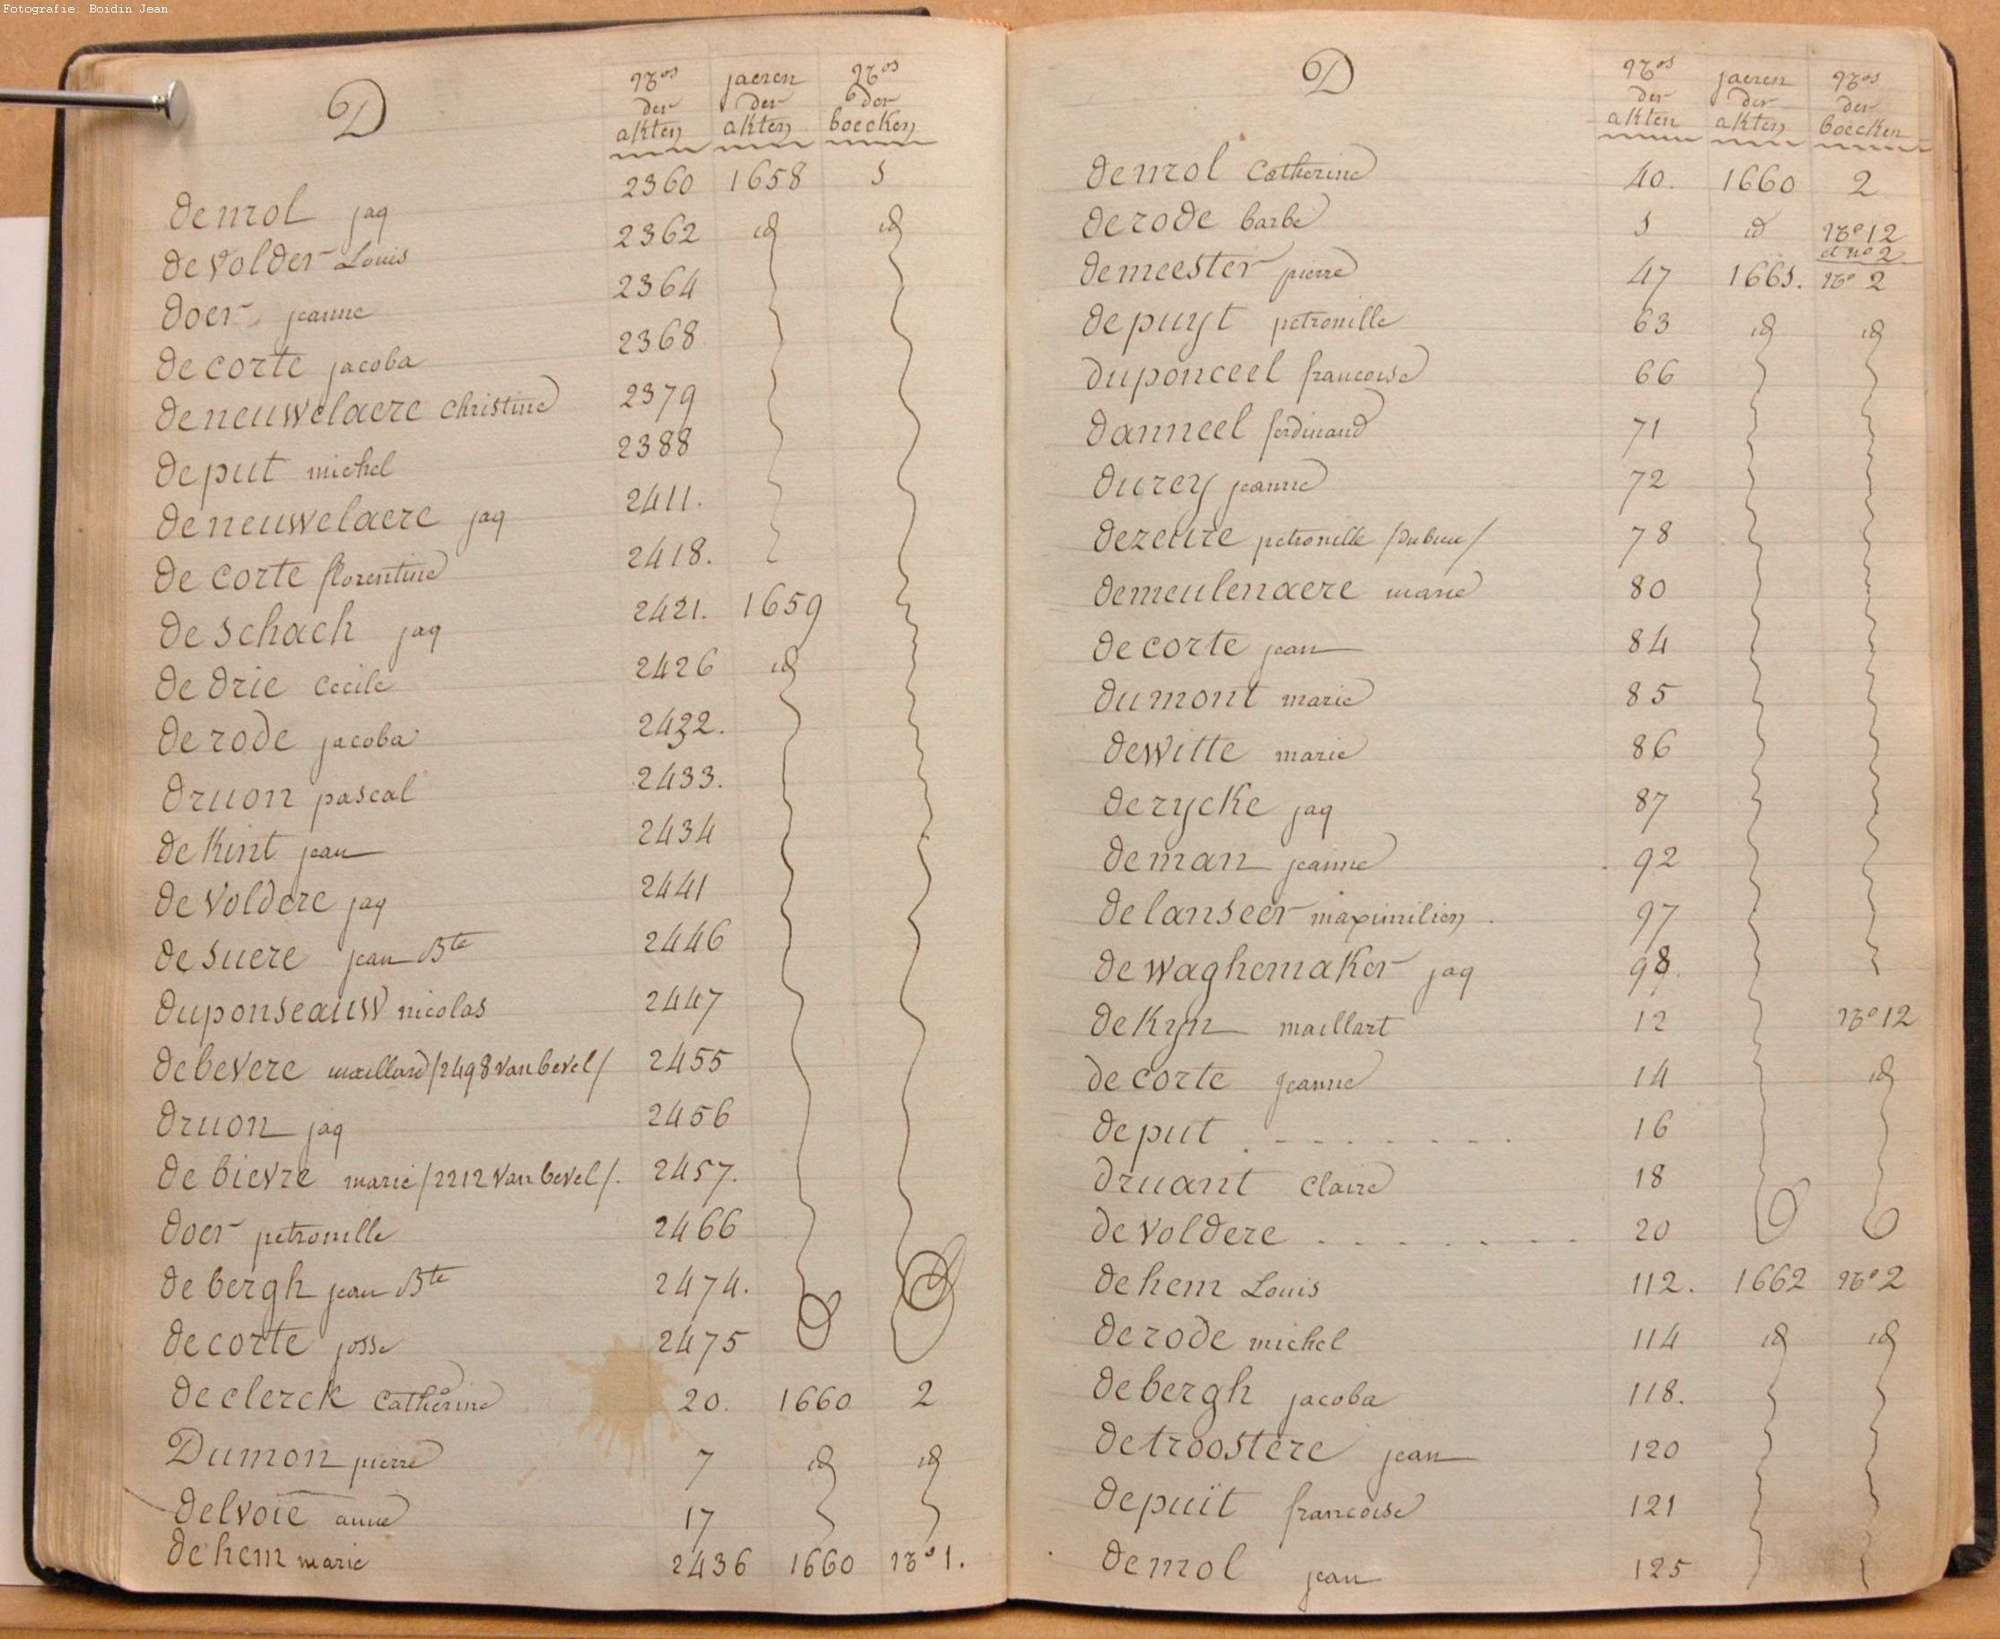 Fotografie: Boidin Jean
D
Nros der akten jaeren der akten Nros der boecken
demol jaq 2360 1658 1
devolder Louis 2362 id id
doer jeanne 2364
decorte jacoba 2368
deneuwelaere christine 2379
deput michel 2388
deneuwelaere jaq 2411.
decorte florentine 2418.
deschach jaq 2421. 1659
dedrie Cecile 2426 id
derode jacoba
druon pascal 2433.
dekint jean 2434
devoldere jaq 2441
desuere jean Bte 2446
duponseauw nicolas 2447
debevere maillard /2498 van bevel/ 2455
druon jaq 2456
debievre marie /2212 van bevel/. 2457.
doer petronille 2466
debergh jean Bte 2474.
decorte josse 2475
declerck Catherine 20. 1660 2
Dumon pierre 7 id id
delvoie anne 17
dehem marie 2436 1660 Nro 1.
D
Nros der akten jaeren der akten Nros der boecken
demol Catherine 40. 1660 2
derode barbe 1 id Nro 12 et no 2
demeester pierre 47 1661. Nro 2
depuyt petronille 63 id id
duponceel francoise 66
danneel ferdinand 71
durey jeanne 72
dezeure petronille 78
demeulenaere marie 80
decorte jean 84
dumont marie 85
dewitte marie 86
derycke jaq 87
deman jeanne 92
delanseer maximilien. 97
dewaghemaker jaq 98.
dekyn maillart 12 Nro 12
decorte Jeanne 14 id
deput . - - - - - - . 16
druant Claire 18
devoldere . - . - . - - - 20
dehem Louis 112. 1662 Nro 2
derode michel 114 id id
debergh jacoba 118.
detroostere jean 120
depuit francoise 121
demol jean 125